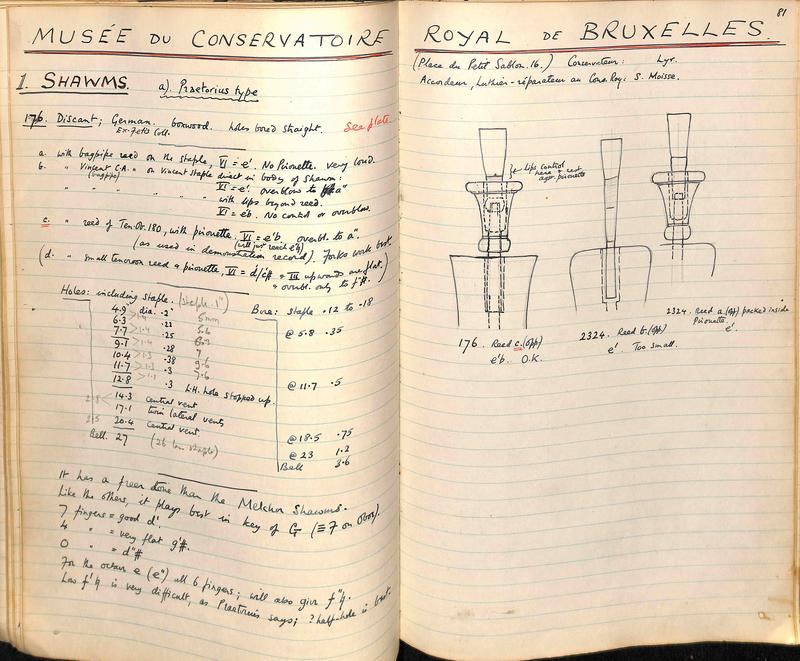 81
MUSÉE DU CONSERVATOIRE ROYAL DE BRUXELLES.
1. SHAWMS. a) Praetorius type
176. Discant; German. boxwood. holes bored straight. See plate
Ex-Fétis Coll.
a. with bagpipe reed on the staple, VI = e'. No Pirouette. Very loud.
b. " Vincent C.A. " on Vincent staple direct in body of Shawm:
(bagpipe)
VI = e'. overblow to a"
with lips beyond reed.
VI = e'b. No control or overblow.
c. " reed of Ten. Or. 180, with pirouette, VI = e'b overbl. to a".
(will just reach e'♮)
(as used in demonstration record). Forks work best.
(d. " small tenoroon reed + pirouette, VI = d'/c'#, + III upwards are flat.
" overbl. only to f"#.)
Holes: including staple. (staple 1")
4.9" dia. .2" 5mm
6.3 .22 5.6
7.7 .25
9.1 .28 7
10.4 .38 9.6
11.7 .3 7.6
12.8 .3 L.H. hole stopped up.
14.3 central vent
17.1 twin lateral vents
20.4 central vent.
Bell. 27 (26 less staple)
Bore: staple .12 to .18
@ 5.8 .35
@ 11.7 .5
@ 18.5 .75
@ 23 1.2
Bell 3.6
It has a freer tone than the Melchor Shawms.
Like the others, it plays best in key of G (≡ F on Oboe).
7 fingers = good d'.
4 " = very flat g'#.
0 " = d"#
For the octave e (e") all 6 fingers; will also give f"♮.
Low f'♮ is very difficult, as Praetorius says; ? half-hole is best.
(Place du Petit Sablon. 16.) Conservateur: Lyr.
Accordeur, Luthier-réparateur au Cons. Roy: S. Moisse.
Lips control
here + rest
agst. pirouette
176. Reed c. (opp)
e'b. O.K.
2324. Reed b. (opp)
e'. Too small.
2324. Reed a. (opp) packed inside
Pirouette.
e'.